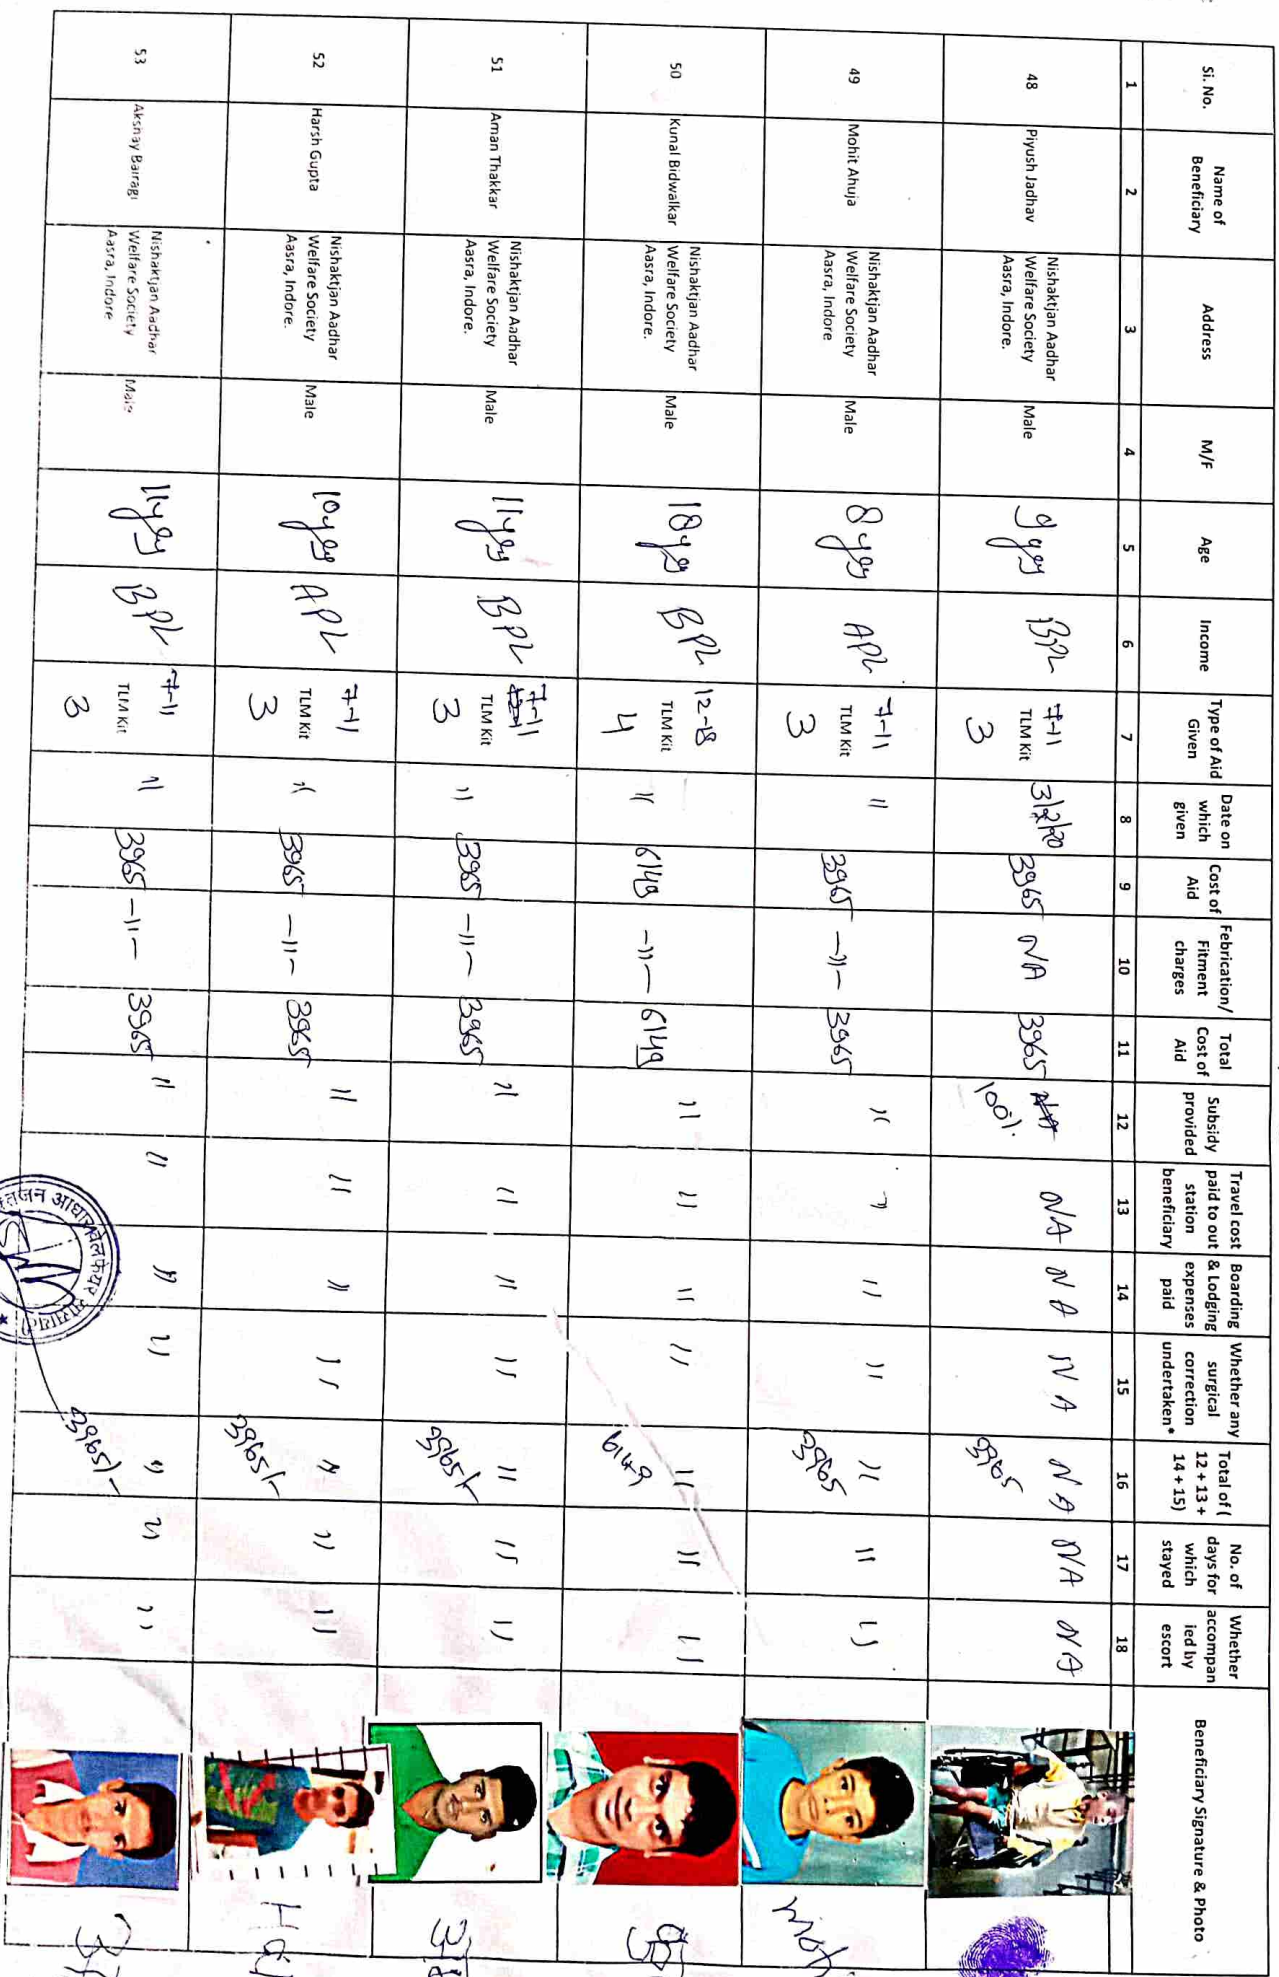 Si. No.
Name of
Beneficiary
Address
M/F
Age
Income
Type of Aid
Given
Date on
which
given
Cost of
Aid
Febrication/
Fitment
charges
Total
Cost of
Aid
Subsidy
provided
Travel cost
paid to out
station
beneficiary
Boarding
& Lodging
expenses
paid
Whether any
surgical
correction
undertaken*
Total of (
12 + 13 +
14 + 15)
No. of
days for
which
stayed
Whether
accompan
ied by
escort
Beneficiary Signature & Photo
1 2 3 4 5 6 7 8 9 10 11 12 13 14 15 16 17 18
48
Piyush Jadhav
Nishaktjan Aadhar
Welfare Society
Aasra, Indore.
Male
9 yrs
BPL
7-11
TLM Kit
3
3/2/20
3965
NA
3965
NA
100%.
NA
NA
NA
NA
3965
NA
NA
49
Mohit Ahuja
Nishaktjan Aadhar
Welfare Society
Aasra, Indore
Male
8 yrs
APL
7-11
TLM Kit
3
"
3965
-"-
3965
"
"
"
"
"
3965
"
"
50
Kunal Bidwalkar
Nishaktjan Aadhar
Welfare Society
Aasra, Indore.
Male
18 yrs
BPL
12-18
TLM Kit
4
"
6149
-"-
6149
"
"
"
"
"
6149
"
"
51
Aman Thakkar
Nishaktjan Aadhar
Welfare Society
Aasra, Indore.
Male
11 yrs
BPL
7-11
TLM Kit
3
"
3965
-"-
3965
"
"
"
"
"
3965/-
"
"
52
Harsh Gupta
Nishaktjan Aadhar
Welfare Society
Aasra, Indore.
Male
10 yrs
APL
7-11
TLM Kit
3
"
3965
-"-
3965
"
"
"
"
"
3965/-
"
"
53
Akshay Bairagi
Nishaktjan Aadhar
Welfare Society
Aasra, Indore
Male
11 yrs
BPL
7-11
TLM Kit
3
"
3965
-"-
3965
"
"
"
"
"
3965/-
"
"